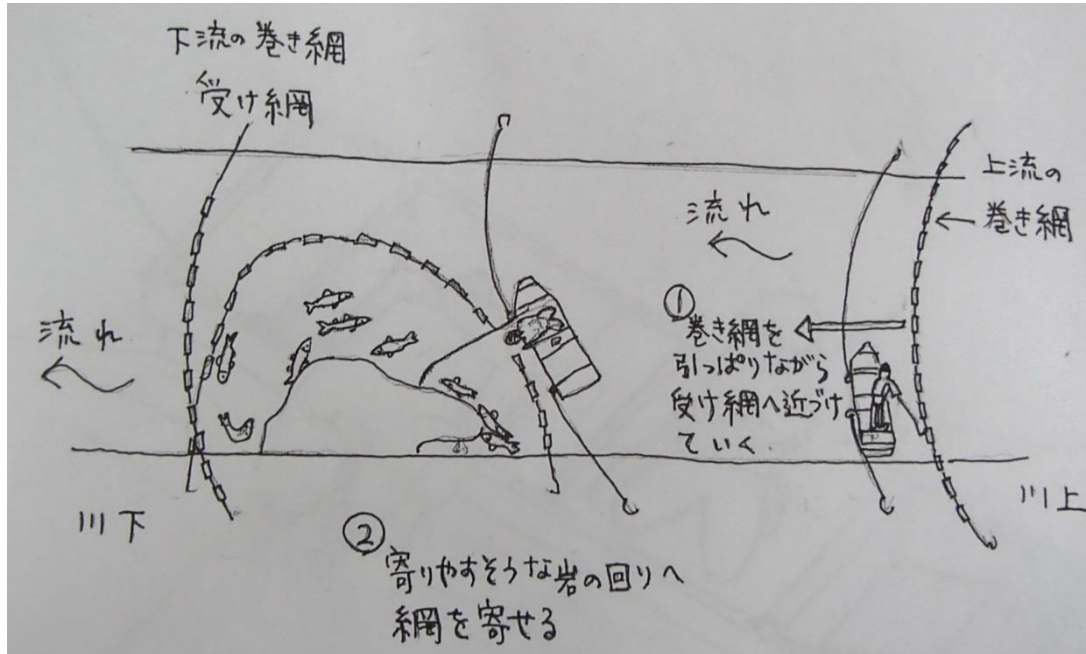 下流の巻き網
受け網
上流の
巻き網
流れ
流れ
①
巻き網を
引っぱりながら
受け網へ近づけ
ていく
川下
川上
②
寄りやすそうな岩の回りへ
網を寄せる